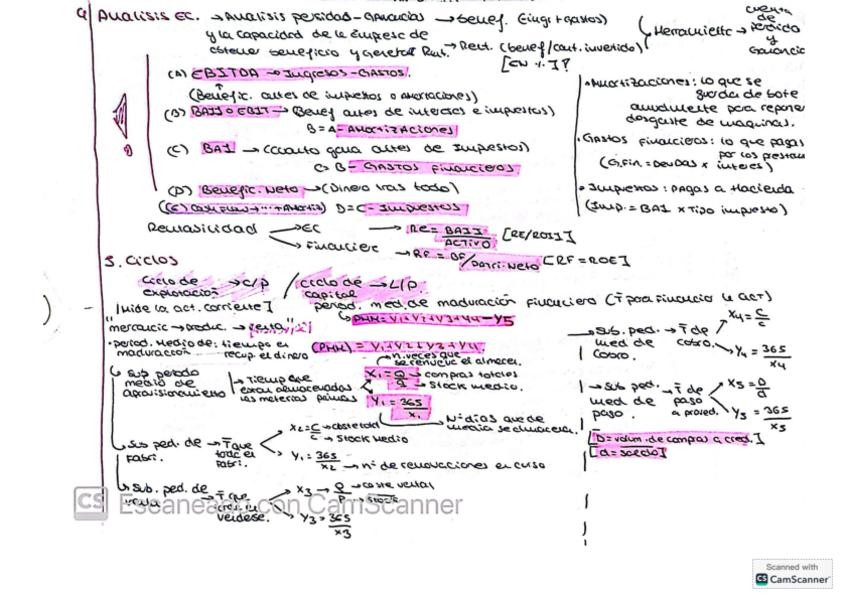 4) Analisis EC. → Analisis perdidas-ganancias → benef. (ingr + gastos)
y la capacidad de la empresa de
obtener beneficio y generar Rent. → Rent. (benef/cant. invertido)
[EN %]?
Herramienta → cuenta de perdida y ganancia
(A) EBITDA → Ingresos - GASTOS.
(Benefic. antes de impuestos o amortaciones)
(B) BAII o EBIT → Benef antes de intereses e impuestos)
B = A - AMORTIZACIONES
(C) BAI → (cuanto gana antes de impuestos)
C = B - GASTOS financieros
(D) Benefic. Neto → (Dinero tras todo)
(E) Cash flow → ... + Amortiz) D = C - Impuestos
• Amortizaciones: lo que se
guarda de bote
anualmente para reponer
desgaste de maquinas.
• Gastos financieros: lo que pagas
por los prestam
(G.fin. = Deudas x interes)
• Impuestos: pagas a Hacienda
(Imp. = BAI x Tipo impuesto)
Rentabilidad → EC → RE = BAII/ACTIVO [RE/ROI]
→ Financier → RF = BF/Patri. Neto [RF = ROE]
5. Ciclos
Ciclo de explotación → C/P / Ciclo de capital → L/P.
[Mide la act. corriente]
period. med. de maduración financiero (T para financia la act)
↳ PMMF = Y1+Y2+Y3+Y4-Y5
"mercancia → produc. → venta"
• period. Medio de maduración: tiempo en recup. el dinero (PMM) = Y1+Y2+Y3+Y4
↳ Sub periodo medio de aprovisionamiento → Tiempo que estan almacenadas las materias primas
n. veces que se renueva el almacen.
X1 = Q/q → compras totales → Stock medio.
Y1 = 365/X1
Nº dias que de media se almacena.
↳ Sub ped. de Fabri. → T que tarda en fabri.
X2 = C/c → coste total → Stock Medio
Y2 = 365/X2 → nº de renovaciones en curso
↳ Sub. ped. de venta → T que
venderse.
X3 → Q/P → coste venta → Stock
Y3 = 365/X3
→ Sub. ped. med de cobro. → T de cobro.
X4 = C/c
Y4 = 365/X4
→ Sub ped. med de pago. → T de pago a proved.
X5 = D/d
Y5 = 365/X5
[D = volum. de compras a cred.]
[d = saldo]
CS Escaneado con CamScanner
Scanned with
CS CamScanner